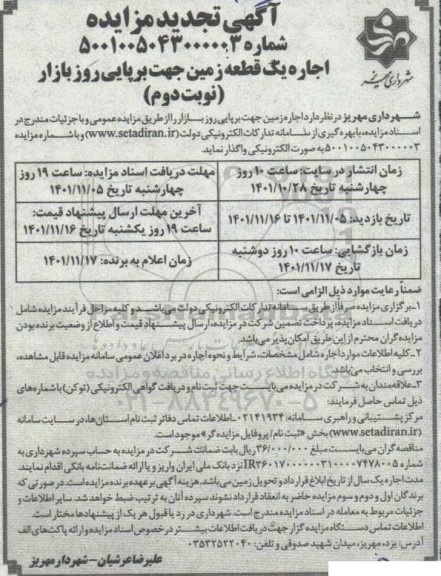 آگهی تجدید مزایده
شماره ۵۰۰۱۰۰۵۰۴۳۰۰۰۰۰۳
اجاره یک قطعه زمین جهت برپایی روز بازار
(نوبت دوم)
شهرداری مهریز
شهرداری مهریز در نظر دارد اجاره زمین جهت برپایی روز بازار را از طریق مزایده عمومی و با جزئیات مندرج در
اسناد مزایده، با بهره گیری از سامانه تدارکات الکترونیکی دولت (www.setadiran.ir) و با شماره مزایده
۵۰۰۱۰۰۵۰۴۳۰۰۰۰۰۳ به صورت الکترونیکی واگذار نماید.
زمان انتشار در سایت: ساعت ۱۰ روز
چهارشنبه تاریخ ۱۴۰۱/۱۰/۲۸
مهلت دریافت اسناد مزایده: ساعت ۱۹ روز
چهارشنبه تاریخ ۱۴۰۱/۱۱/۰۵
تاریخ بازدید: ۱۴۰۱/۱۱/۰۵ تا ۱۴۰۱/۱۱/۱۶
آخرین مهلت ارسال پیشنهاد قیمت:
ساعت ۱۹ روز یکشنبه تاریخ ۱۴۰۱/۱۱/۱۶
زمان بازگشایی: ساعت ۱۰ روز دوشنبه
تاریخ ۱۴۰۱/۱۱/۱۷
زمان اعلام به برنده: ۱۴۰۱/۱۱/۱۷
ضمناً رعایت موارد ذیل الزامی است:
۱- برگزاری مزایده صرفاً از طریق سامانه تدارکات الکترونیکی دولت می باشد و کلیه مراحل فرآیند مزایده شامل
دریافت اسناد مزایده، پرداخت تضمین شرکت در مزایده، ارسال پیشنهاد قیمت و اطلاع از وضعیت برنده بودن
مزایده گران محترم از این طریق امکان پذیر می باشد.
۲- کلیه اطلاعات موارد اجاره شامل مشخصات، شرایط و نحوه اجاره در برد اعلان عمومی سامانه مزایده قابل مشاهده،
بررسی و انتخاب می باشد.
۳- علاقه مندان به شرکت در مزایده می بایست جهت ثبت نام و دریافت گواهی الکترونیکی (توکن) با شماره های
ذیل تماس حاصل فرمایند:
مرکز پشتیبانی و راهبری سامانه: ۰۲۱۴۱۹۳۴- اطلاعات تماس دفاتر ثبت نام استان ها، در سایت سامانه
(www.setadiran.ir) بخش «ثبت نام/پروفایل مزایده گر» موجود است.
مناقصه گران می بایست مبلغ ۳۶/۰۰۰/۰۰۰ ریال بابت ضمانت شرکت در مزایده به حساب سپرده شهرداری به
شماره نزد بانک ملی ایران واریز و یا ارائه ضمانت نامه بانکی اقدام نمایند.
مدت اجاره یک سال از تاریخ ابلاغ قرارداد و تحویل زمین می باشد. هزینه آگهی بر عهده برنده مزایده است. در صورتی که
برندگان اول و دوم و سوم مزایده حاضر به انعقاد قرارداد نشوند سپرده آنان به ترتیب ضبط خواهد شد. سایر اطلاعات و
جزئیات مربوط به معامله در اسناد مزایده مندرج است. شهرداری در رد یا قبول هر یک از پیشنهادها مختار است.
اطلاعات تماس دستگاه مزایده گزار جهت دریافت اطلاعات بیشتر در خصوص اسناد مزایده و ارائه پاکت های الف
آدرس: یزد، مهریز، میدان شهید صدوقی و تلفن: ۰۳۵۳۲۵۲۲۰۴۰
علیرضا عرشیان - شهردار مهریز
۰۲۱-۸۸۳۴۹۶۷۰-۵